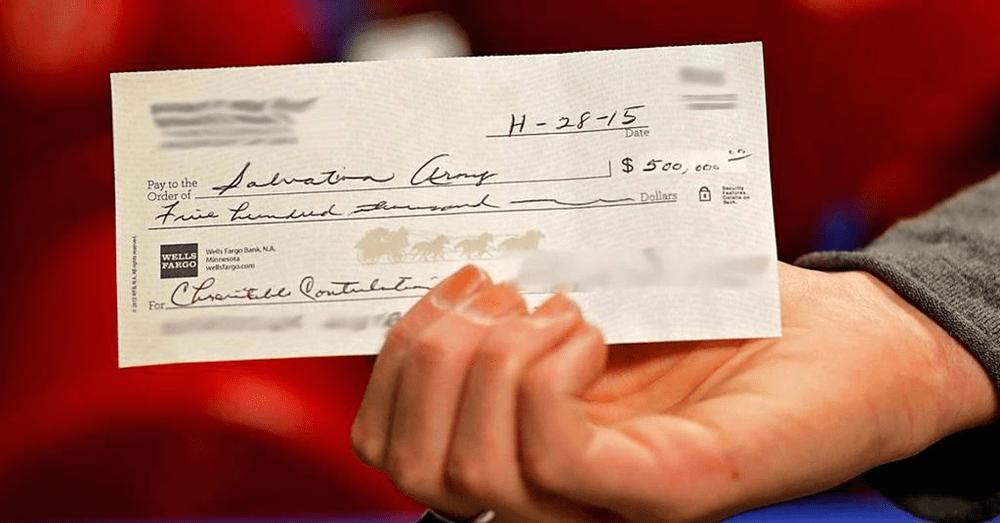 H-28-15
Date
Pay to the
Order of Salvation Army $ 500,000
Five hundred thousand Dollars
Security
Features
Details on
Back.
WELLS
FARGO
Wells Fargo Bank, N.A.
Minnesota
wellsfargo.com
For Charitable Contribution